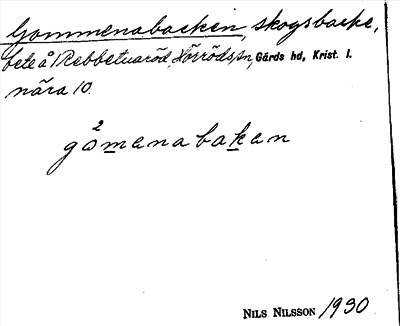 Gommenabacken, skogsbacke,
bete å Rebbetuaröd, Hörröds sn, Gärds hd, Krist. l.
nära 10.
2
gåmenabaken
NILS NILSSON 1930